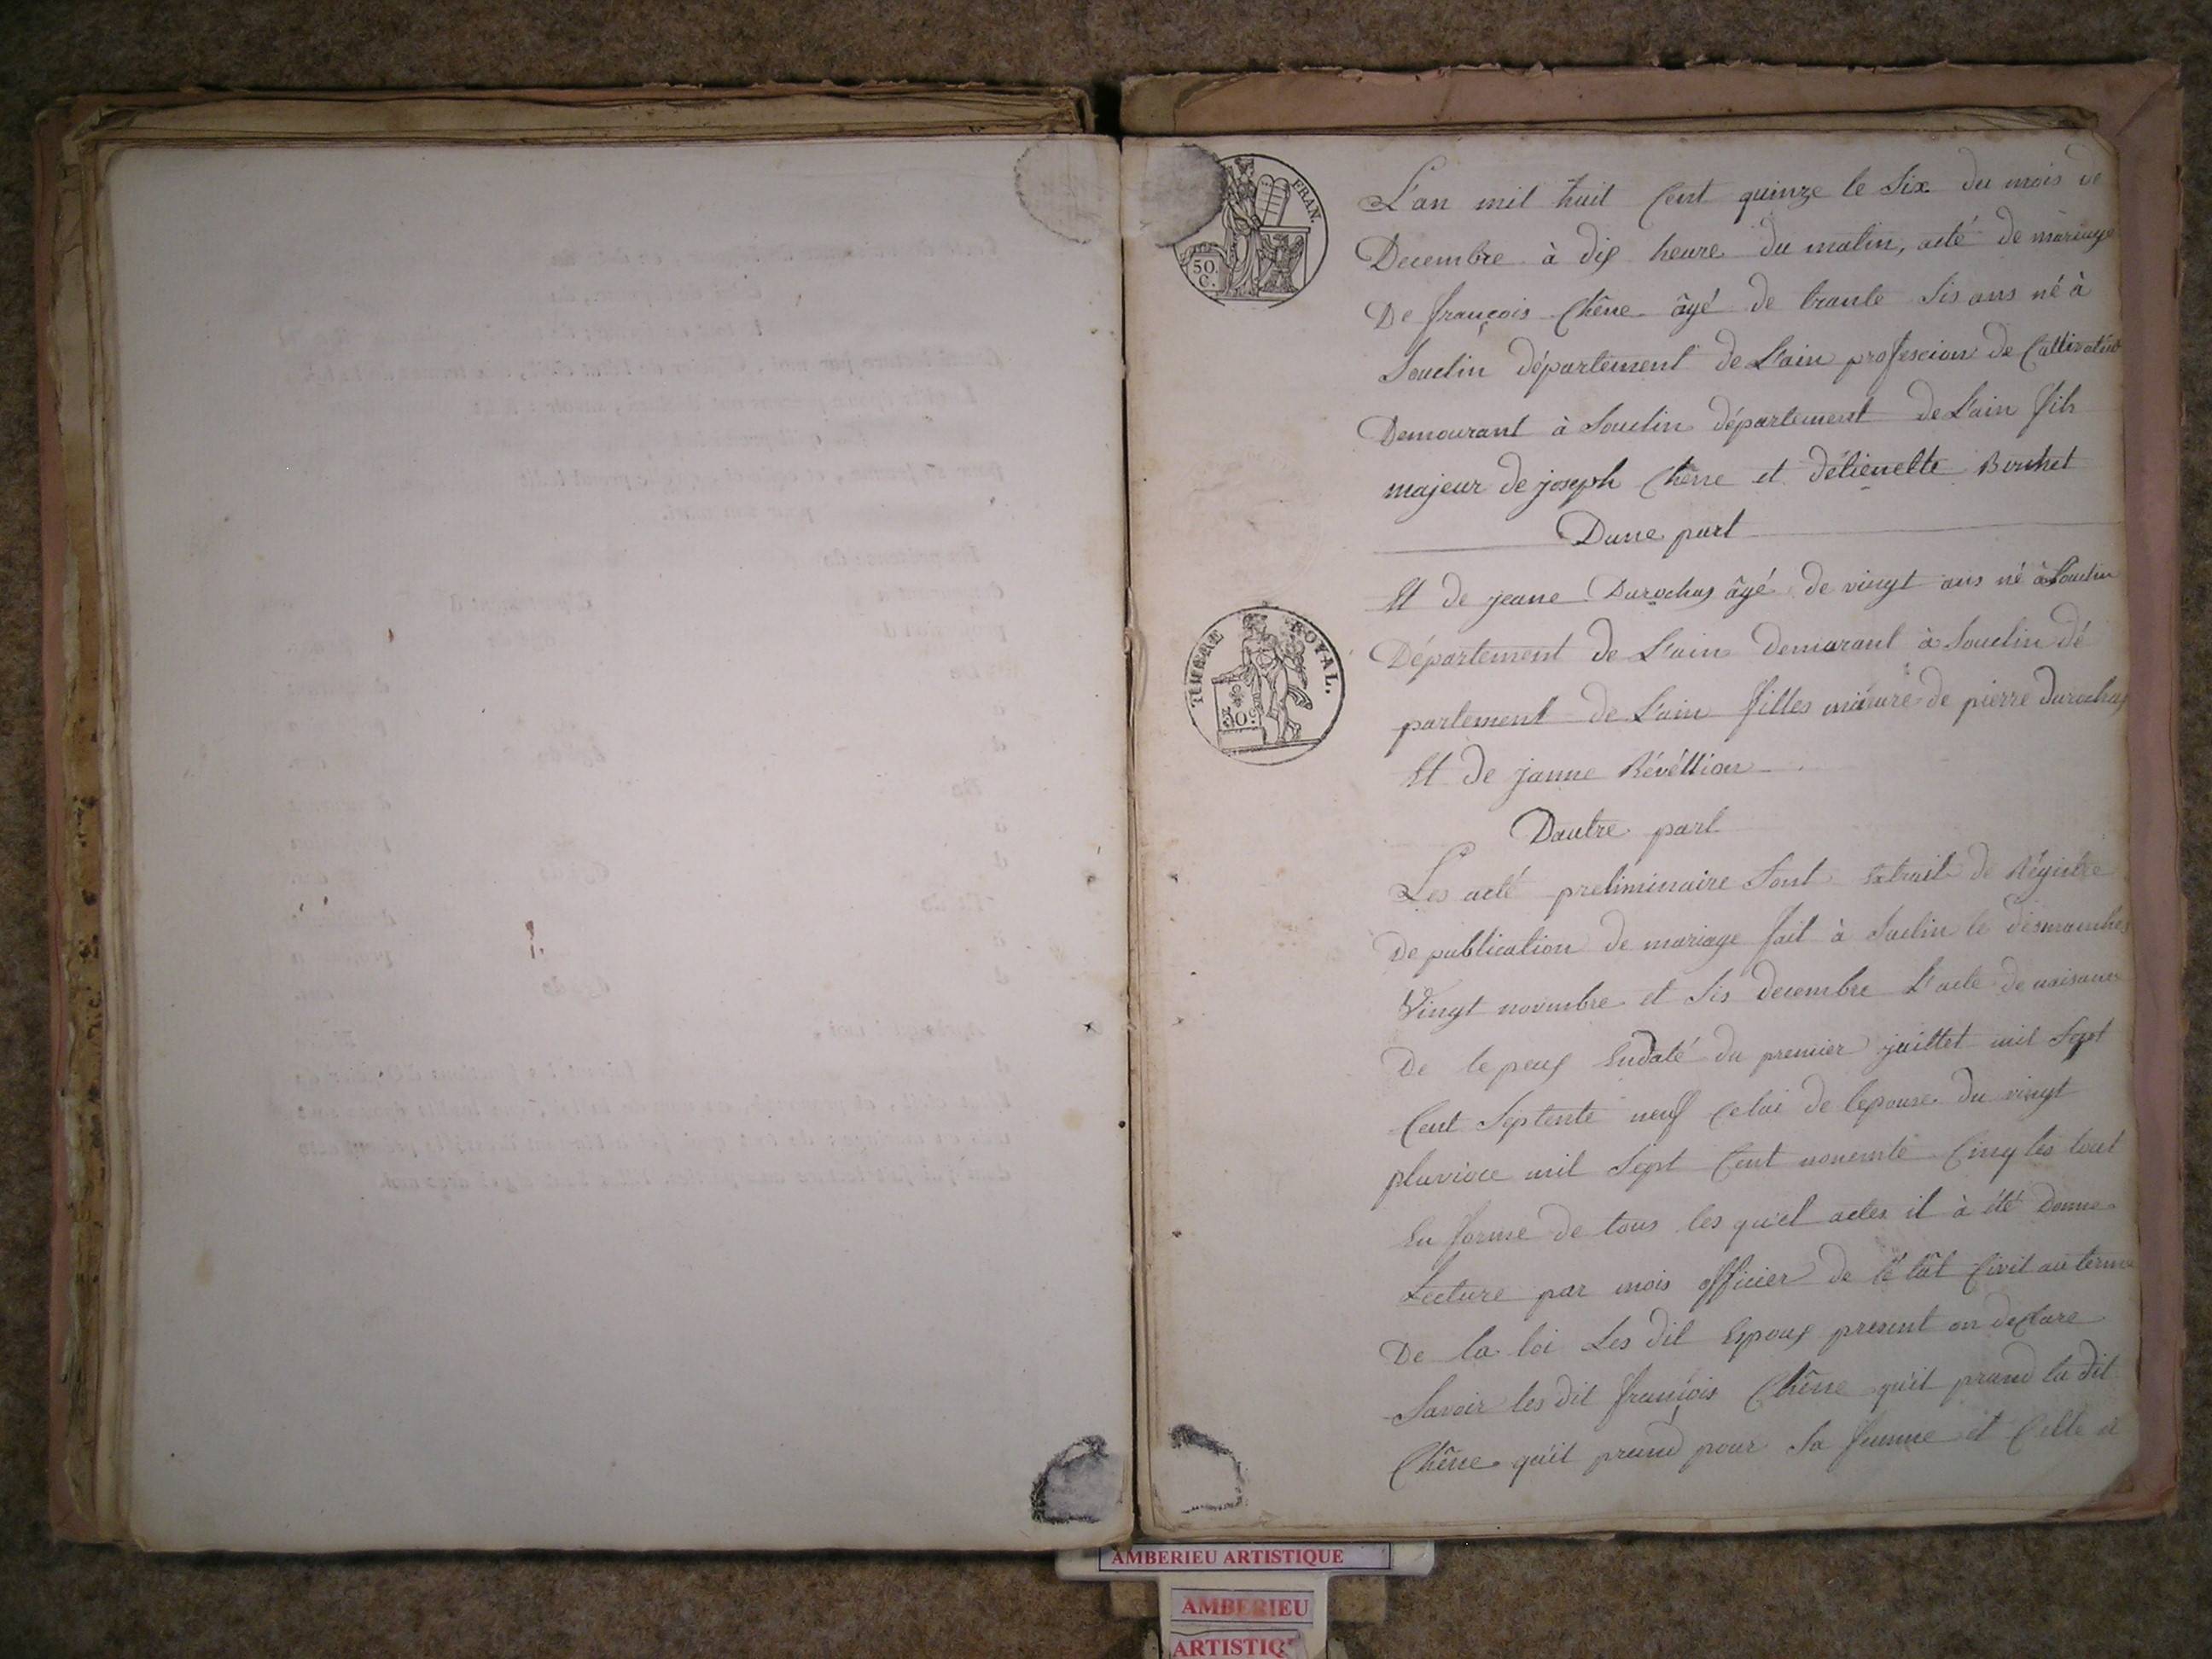 FRAN.
50.
C.
L'an mil huit Cent quinze le Six du mois de
Decembre à dix heure du matin, acté de mariage
De françois Chêne âgé de trante Sis ans né à
Souclin département de L'ain profescion de Cultivateur
Demourant à Souclin département de L'ain fils
majeur de joseph Chêne et détienette
Dune part
Et de jeane Durochas âgé de vingt ans né à Souclin
TIMBRE ROYAL.
50c
Département de L'ain demurant à Souclin dé
partement de L'ain filles mineure de pierre durochas
Et de janne Révéllion
Dautre part
Les acté preliminaire Sont Extrait de Régistre
De publication de mariage fait à Suclin le
Vingt novembre et Sis decembre L'acte de naisance
De lepeux Endaté du premier juillet mil Sept
Cent Septente neuf Celui de lepouse du vingt
pluvioce mil Sept Cent nonente Cinq les tout
En forme de tous les qu'el actes il à été Donne
Lecture par mois officier de l'état Civil au terme
De la loi Les dit Epoux present on declare
Savoir les dit françois Chêne qu'il prand la dit
Chêne qu'il prand pour Sa femme et Celle ci
AMBERIEU ARTISTIQUE
AMBERIEU
ARTISTIQ